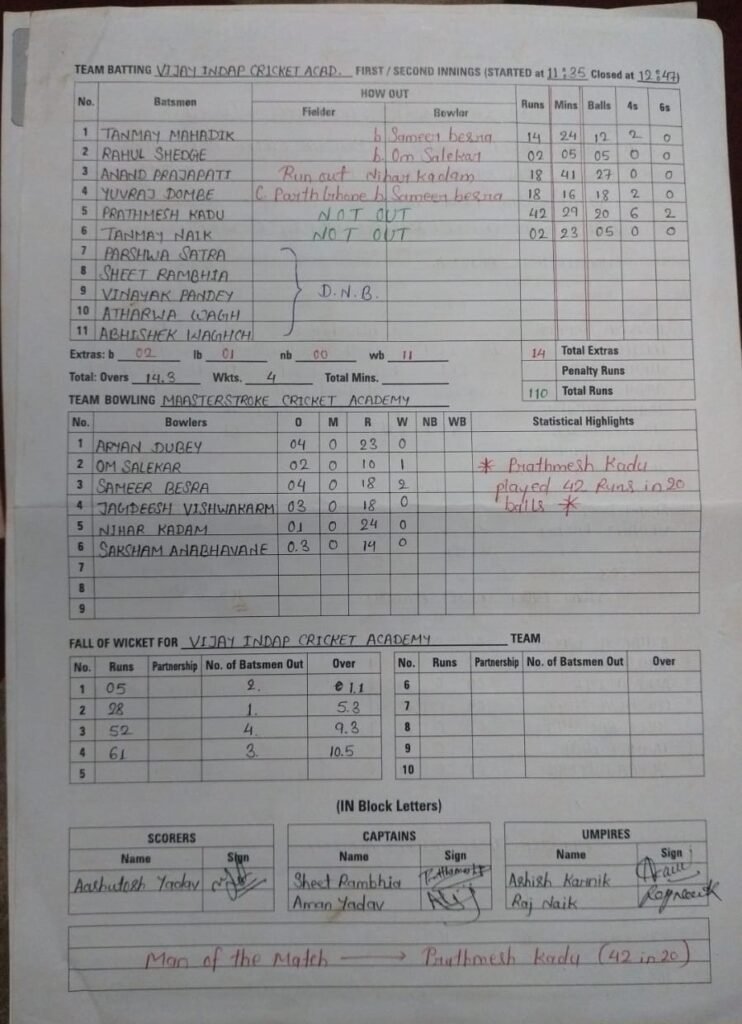 TEAM BATTING VIJAY INDAP CRICKET ACAD. FIRST / SECOND INNINGS (STARTED at 11:35 Closed at 12:47)
No. Batsmen HOW OUT Runs Mins Balls 4s 6s
Fielder Bowlor
1 TANMAY MAHADIK b Sameer besra 14 24 12 2 0
2 RAHUL SHEDGE b Om Salekar 02 05 05 0 0
3 ANAND PRAJAPATI Run out Nihar Kadam 18 41 27 0 0
4 YUVRAJ DOMBE C. Parth Ghone b Sameer besra 18 16 18 2 0
5 PRATHMESH KADU NOT OUT 42 29 20 6 2
6 TANMAY NAIK NOT OUT 02 23 05 0 0
7 PARSHWA SATRA
8 SHEET RAMBHIA
9 VINAYAK PANDEY D.N.B.
10 ATHARWA WAGH
11 ABHISHEK WAGHCH
Extras: b 02 lb 01 nb 00 wb 11 14 Total Extras
Penalty Runs
Total: Overs 14.3 Wkts. 4 Total Mins. 110 Total Runs
TEAM BOWLING MAASTERSTROKE CRICKET ACADEMY
No. Bowlers O M R W NB WB Statistical Highlights
1 ARYAN DUBEY 04 0 23 0
2 OM SALEKAR 02 0 10 1 * Prathmesh Kadu
3 SAMEER BESRA 04 0 18 2 played 42 Runs in 20
4 JAGDEESH VISHWAKARM 03 0 18 0 balls *
5 NIHAR KADAM 01 0 24 0
6 SAKSHAM ANABHAVANE 0.3 0 14 0
7
8
9
FALL OF WICKET FOR VIJAY INDAP CRICKET ACADEMY TEAM
No. Runs Partnership No. of Batsmen Out Over No. Runs Partnership No. of Batsmen Out Over
1 05 2. 1.1 6
2 28 1. 5.3 7
3 52 4. 9.3 8
4 61 3. 10.5 9
5 10
(IN Block Letters)
SCORERS CAPTAINS UMPIRES
Name Sign Name Sign Name Sign
Aashutosh Yadav Sheet Rambhia Ashish Karnik
Aman Yadav Raj Naik
Man of the Match → Prathmesh Kadu (42 in 20)